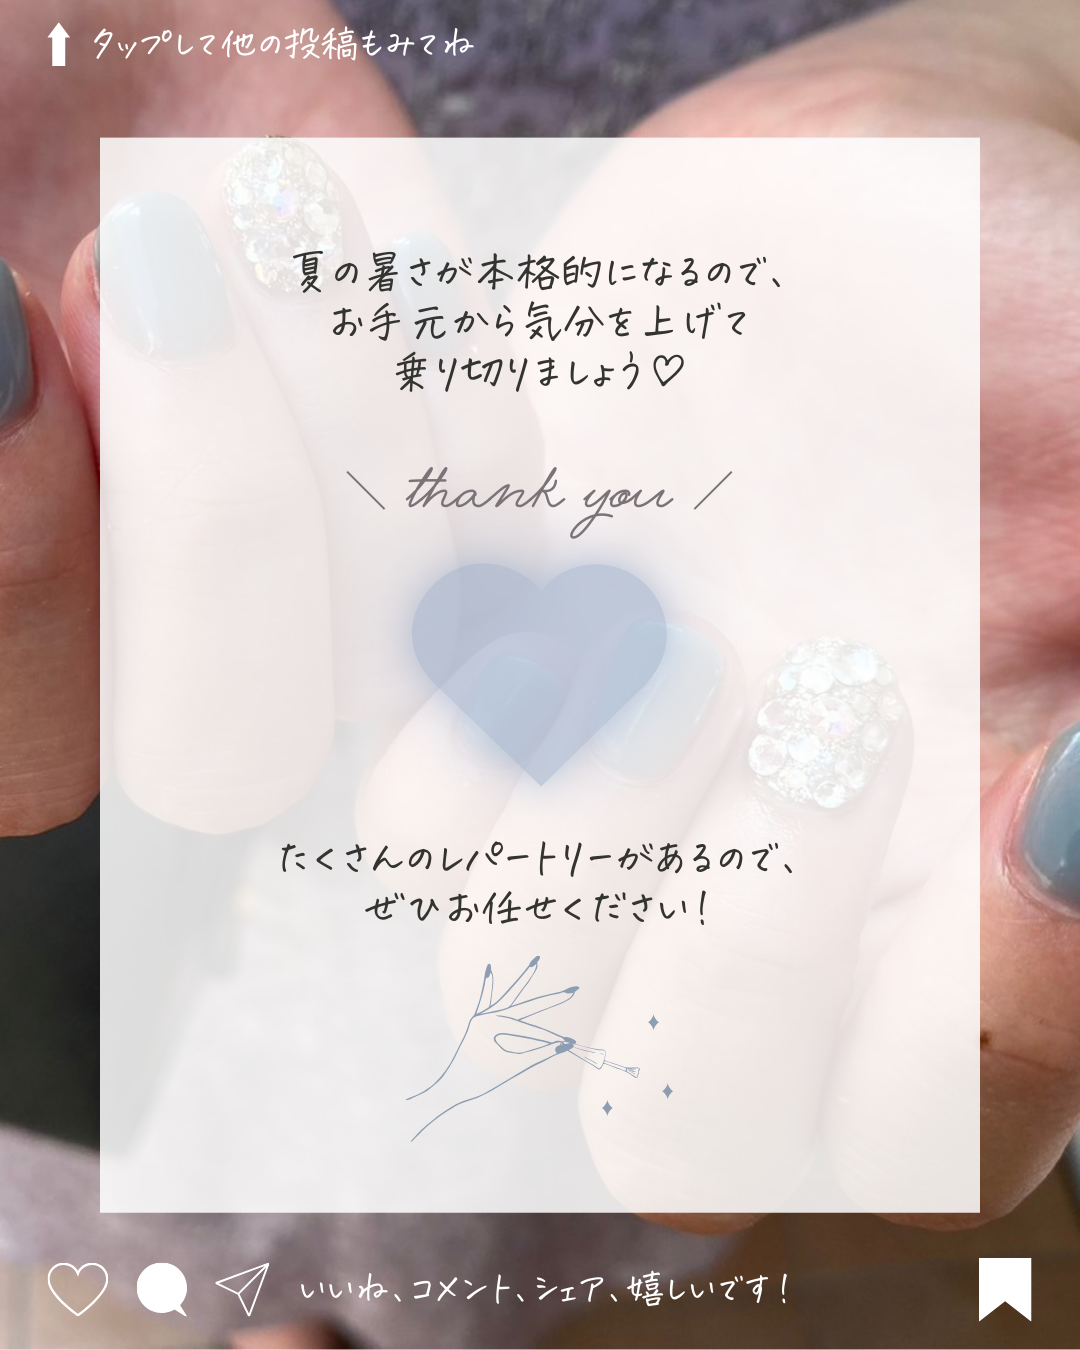 タップして他の投稿もみてね
夏の暑さが本格的になるので、
お手元から気分を上げて
乗り切りましょう♡
\ thank you /
たくさんのレパートリーがあるので、
ぜひお任せください!
いいね、コメント、シェア、嬉しいです!